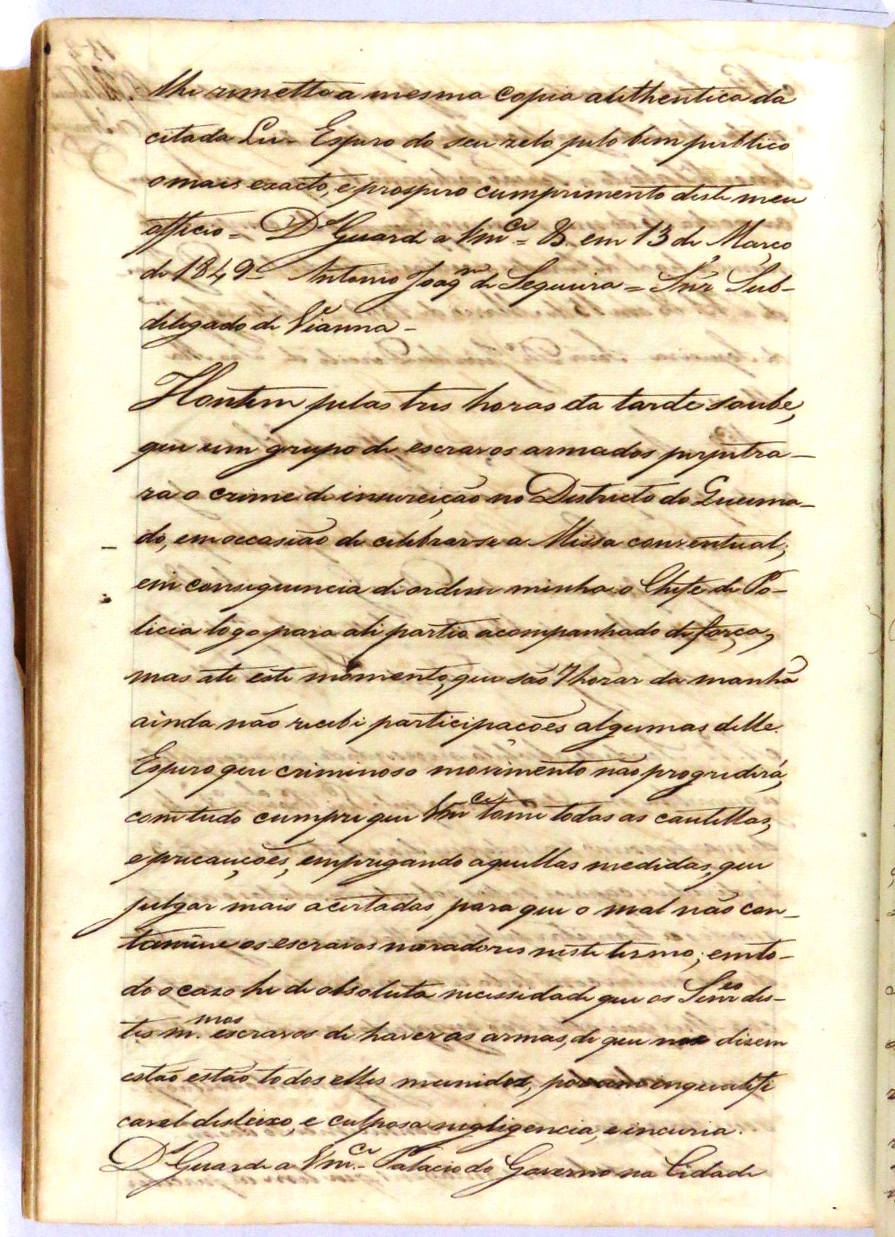 lhe remetto a mesma copia authentica da
citada Lei - Espero do seu zelo pelo bem publico
o mais exacto, e prospero cumprimento deste meu
officio = Ds Guarde a Vmce = S. em 13 de Março
de 1849 - Antonio Joaqm de Sequeira = Snr Sub-
delegado de Vianna -
Hontem pelas tres horas da tarde soube,
que um grupo de escravos armados perpetra-
ra o crime de insureição no Districto do Queima-
do, em occasião de celebrar-se a Missa conventual;
em consequencia de ordem minha o Chefe de Po-
licia logo para ali partio acompanhado de força,
mas ate este momento, que são 7 horas da manhã
ainda não recebi participações algumas delle.
Espero que criminoso movimento não progredirá,
com tudo cumpre que Vmce tome todas as cautellas,
e precauções, empregando aquellas medidas, que
julgar mais acertadas para que o mal não con-
tamine os escravos moradores neste termo; em to-
do o cazo he de absoluta necessidade que os Senres des-
tes mmos escravos de haver as armas, de que nos dizem
estão estão todos elles munidos, por inqualifi
cavel desleixo, e culposa negligencia, e incuria.
Ds Guarde a Vmce - Palacio do Governo na Cidade